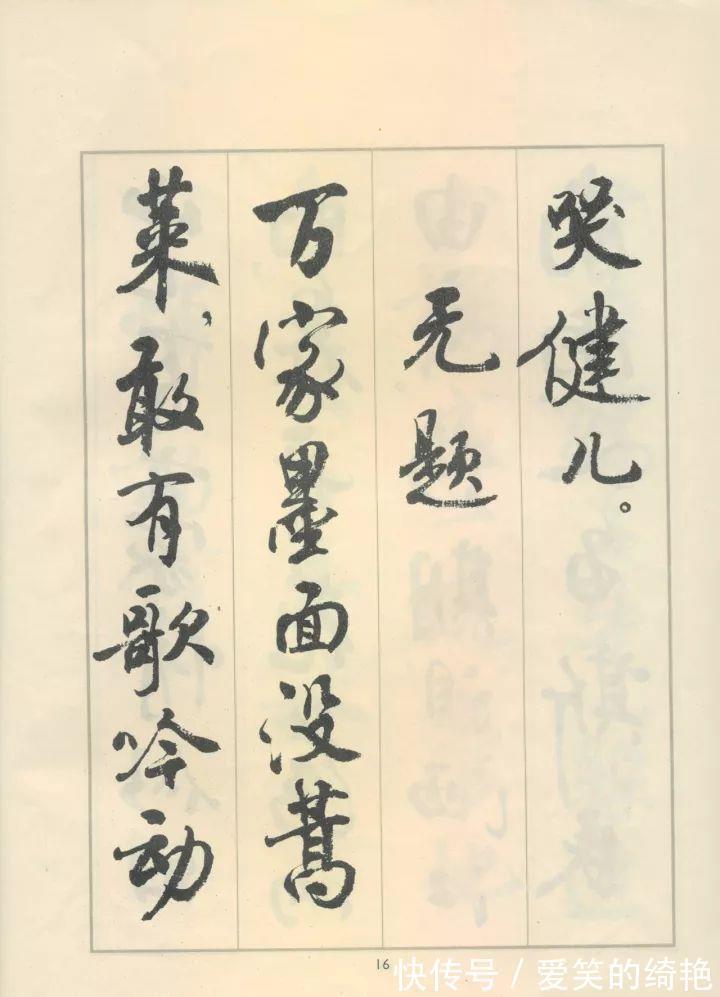 哭健儿。
无题
万家墨面没蒿
莱,敢有歌吟动
16
快传号 / 爱笑的绮艳